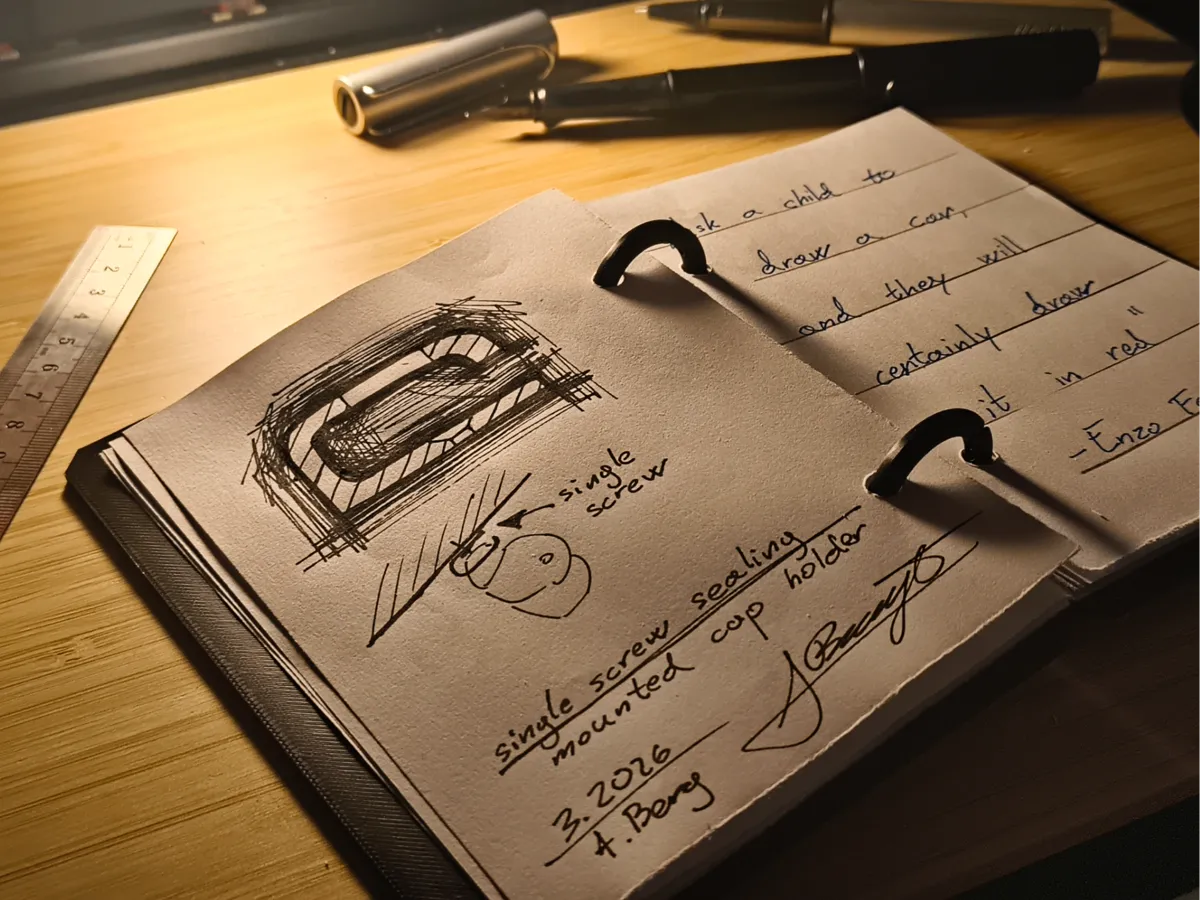 single
screw
single screw sealing
mounted cap holder
3.2026
A. Berg
sk a child to
draw a car,
and they will
certainly draw
it in red "
- Enzo
1 2 3 4 5 6 7 8